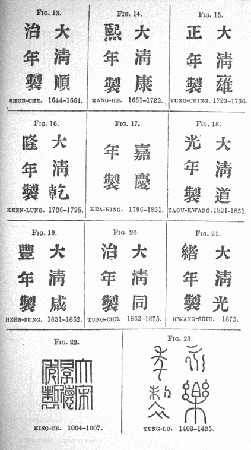 FIG. 13.
大清順
治年製
SHUN-CHE. 1644-1661.
FIG. 14.
大清康
熙年製
KANG-HE. 1661-1722.
FIG. 15.
大清雍
正年製
YUNG-CHING. 1723-1736.
FIG. 16.
大清乾
隆年製
KEEN-LUNG. 1736-1795.
FIG. 17.
嘉慶
年製
KEA-KING. 1796-1821.
FIG. 18.
大清道
光年製
TAOU-KWANG. 1821-1851.
FIG. 19.
大清咸
豐年製
HEEN-FUNG. 1851-1862.
FIG. 20.
大清同
治年製
TUNG-CHE. 1862-1875.
FIG. 21.
大清光
緒年製
1875.
FIG. 22.
KING-TE. 1004-1007.
FIG. 23.
永樂
年製
YUNG-LO. 1403-1425.